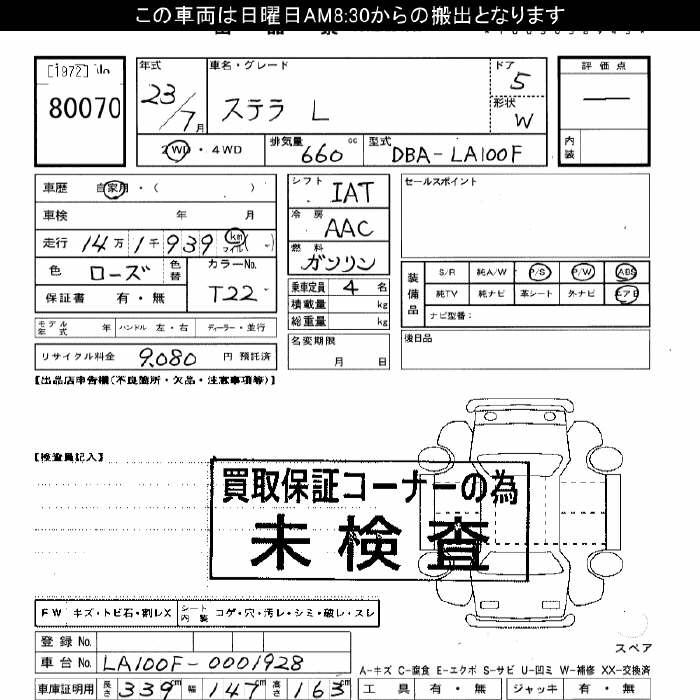 この車両は日曜日AM8:30からの搬出となります
[1972] No
80070
年式 車名・グレード ドア 評価点
23/7月 ステラ L 5
形状 W
2WD・4WD 排気量 660 cc 型式 DBA-LA100F 内装
車歴 自家用・( )
車検 年 月
走行 14万 1千 939 km マイル( )
色 ローズ 色替 カラーNo. T22
保証書 有・無
モデル年式 年 ハンドル 左・右 ディーラー・並行
リサイクル料金 9,080 円 預託済
シフト IAT
冷房 AAC
燃料 ガソリン
乗車定員 4 名
積載量 kg
総重量 kg
名変期限 月 日
セールスポイント
装備品 S/R 純A/W P/S P/W ABS
純TV 純ナビ 革シート 外ナビ エアB
ナビ型番:
後日品
【出品店申告欄(不良箇所・欠品・注意事項等)】
【検査員記入】
買取保証コーナーの為
未検査
FW キズ・トビ石・割レX シート内装 コゲ・穴・汚レ・シミ・破レ・スレ
登録 No.
車台 No. LA100F-0001928
車庫証明用 長さ 339cm 幅 147cm 高さ 163cm
スペア
A-キズ C-腐食 E-エクボ S-サビ U-凹ミ W-補修 XX-交換済
工具 有・無 ジャッキ 有・無